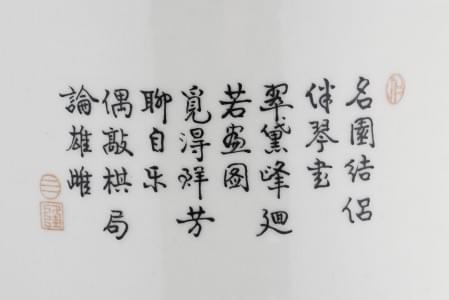 名園結侶
伴琴書
翠黛峰迴
若画图
覓得群芳
聊自乐
偶敲棋局
論雄雌